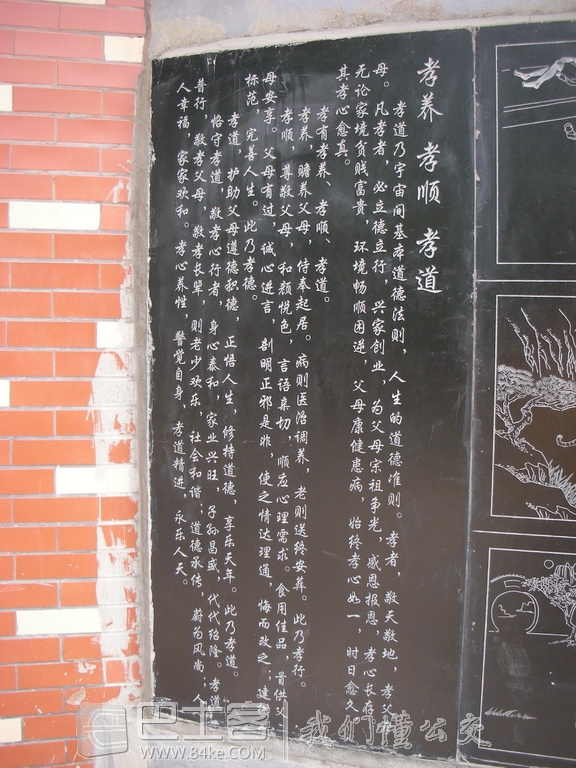 孝养 孝顺 孝道
孝道乃宇宙间基本道德法则，人生的道德准则。孝者，敬天敬地，孝父
母。凡孝者，必立德立行，兴家创业，为父母宗祖争光，感恩报恩，孝心长存
无论家境贫贱富贵，环境畅顺困逆，父母康健患病，始终孝心如一，时日愈久
其孝心愈真。
孝有孝养、孝顺、孝道。
孝养，赡养父母，侍奉起居。病则医治调养，老则送终安葬。此乃孝行。
孝顺，尊敬父母，和颜悦色，言语亲切，顺应心理需求。食用佳品，首供父
母安享。父母有过，诚心进言，剖明正邪是非，使之情达理通，悔而改之；建
标范，完善人生。此乃孝德。
孝道，护助父母道德积德，正悟人生、修持道德，享乐天年。此乃孝道。
恪守孝道，敬孝心行者，身心泰和，家业兴旺，子孙昌盛，代代绍隆。孝道
普行，敬孝父母，敬孝长辈，则老少欢乐，社会和谐；道德承传，蔚为风尚；人
人幸福，家家欢和。孝心养性，警觉自身，孝道精进，永乐人天。
巴士客 我们懂公交
www.84ke.com